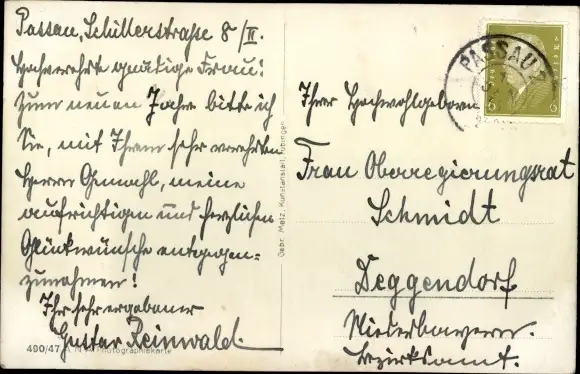 Passau, Schillerstraße 8/II.
Hochverehrte gnädige Frau!
Zum neuen Jahre bitte ich
Sie, mit Ihrem sehr verehrten
Herrn Gemahl, meine
aufrichtigen und herzlichen
Glückwünsche entgegen=
zunehmen!
Ihr sehr ergebener
Gustav Reinwald.
490/47 Photographiekarte
Gebr. Metz, Kunstanstalt, Tübingen
PASSAU 2
6 6
Ihrer Hochwohlgeboren
Frau Oberregierungsrat
Schmidt
Deggendorf
Niederbayern.
Bezirksamt.